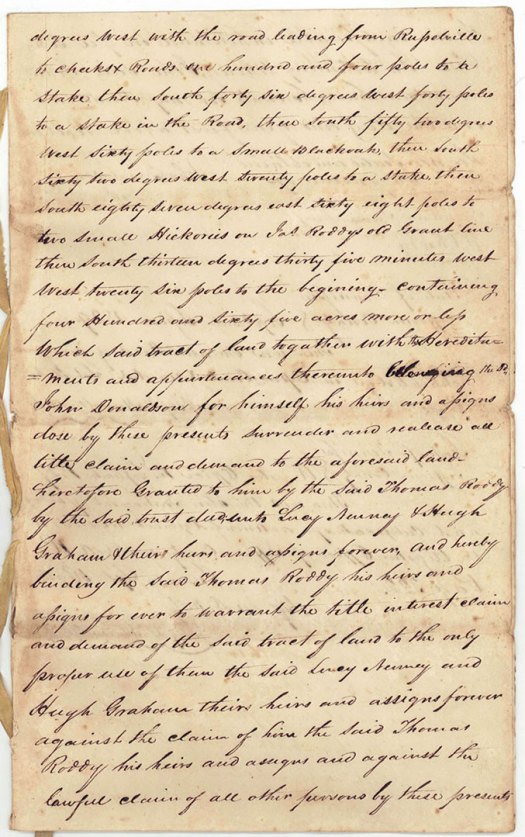 degrees West with the road leading from Russelville
to cheeks X Roads one hundred and four poles to a
Stake then South forty six degrees West forty poles
to a stake in the Road, then South fifty two degrees
West Sixty poles to a Small Blackoak, then South
Sixty two degrees West twenty poles to a stake, then
South eighty seven degrees east Sixty eight poles to
two small Hickories on Jas Roddys old Grant line
then South thirteen degrees thirty five minutes West
West twenty six poles to the begining - containing
four Hundred and Sixty five acres more or less
Which said tract of land togather with the Heredita=
=ments and appurtenances thereunto belonging the Sd.
John Donaldson for himself his heirs and assigns
dose by these presents Surrender and realease all
title claim and demand to the aforesaid land -
heretofore Granted to him by the Said Thomas Roddy
by the Said trust deed unto Lucy Nenney & Hugh
Graham & theirs heirs and assigns forever and hereby
binding the Said Thomas Roddy his heirs and
assigns for ever to warrant the title interest claim
and demand of the Said tract of land to the only
proper use of them the said Lucy Nenney and
Hugh Graham theirs heirs and assigns forever
against the claim of him the Said Thomas
Roddy his heirs and assigns and against the
lawful claim of all other persons by these presents